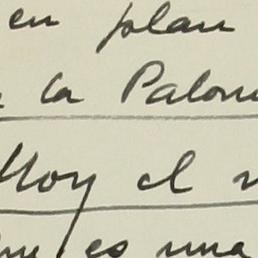 en plan
la Palom
Hoy el
es una